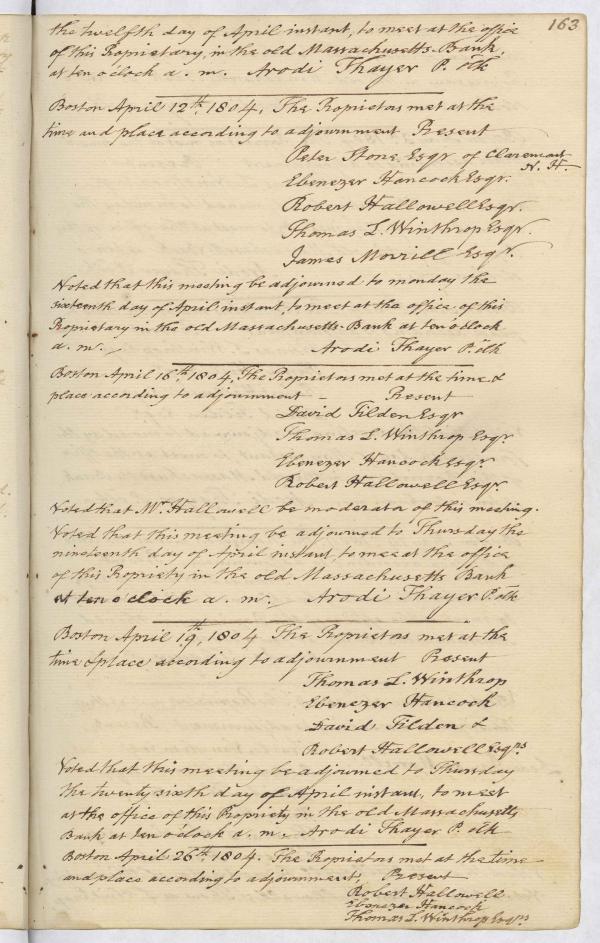 163
the twelfth day of April instant, to meet at the office
of this Proprietary, in the old Massachusetts Bank,
at ten o'clock a. m. Arodi Thayer P. Clk
Boston April 12th, 1804, The Proprietors met at the
time and place according to adjournment Present
Peter Stone Esqr of Claremont
N. H.
Ebenezer Hancock Esqr.
Robert Hallowell Esqr.
Thomas L. Winthrop Esqr.
James Morrill Esqr.
Voted that this meeting be adjourned to monday the
sixteenth day of April instant, to meet at the office of this
Proprietary in the old Massachusetts Bank at ten o'clock
a. m. Arodi Thayer P. Clk
Boston April 16th, 1804, The Proprietors met at the time &
place according to adjournment – Present
David Tilden Esqr
Thomas L. Winthrop Esqr.
Ebenezer Hancock Esqr.
Robert Hallowell Esqr.
Voted that Mr. Hallowell be moderator of this meeting.
Voted that this meeting be adjourned to Thursday the
nineteenth day of April instant, to meet at the office
of this Propriety in the old Massachusetts Bank
at ten o'clock a. m. Arodi Thayer P. Clk
Boston April 19th, 1804 The Proprietors met at the
time & place according to adjournment Present
Thomas L. Winthrop
Ebenezer Hancock
David Tilden &
Robert Hallowell Esqrs
Voted that this meeting be adjourned to Thursday
the twenty sixth day of April instant, to meet
at the office of this Propriety in the old Massachusetts
Bank at ten o'clock a. m. Arodi Thayer P. Clk
Boston April 26th, 1804. The Proprietors met at the time
and place according to adjournment, Present
Robert Hallowell
Ebenezer Hancock
Thomas L. Winthrop Esqrs